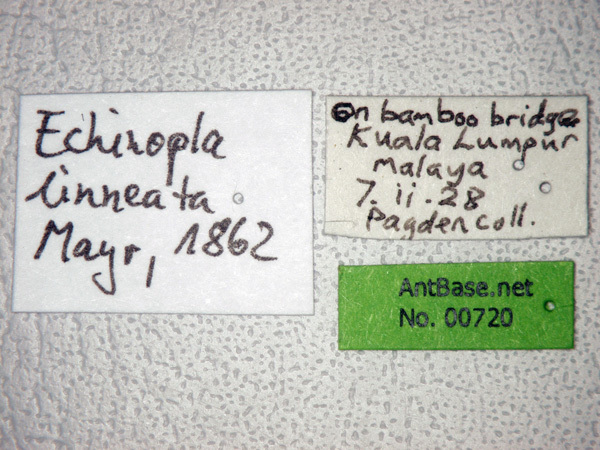 Echinopla
linneata
Mayr, 1862
On bamboo bridge
Kuala Lumpur
Malaya
7. ii. 28
Pagden coll.
AntBase.net
No. 00720